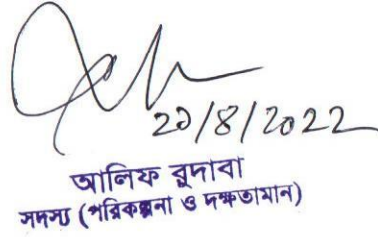 ২১/8/2022
আলিফ রুদাবা
সদস্য (পরিকল্পনা ও দক্ষতামান)